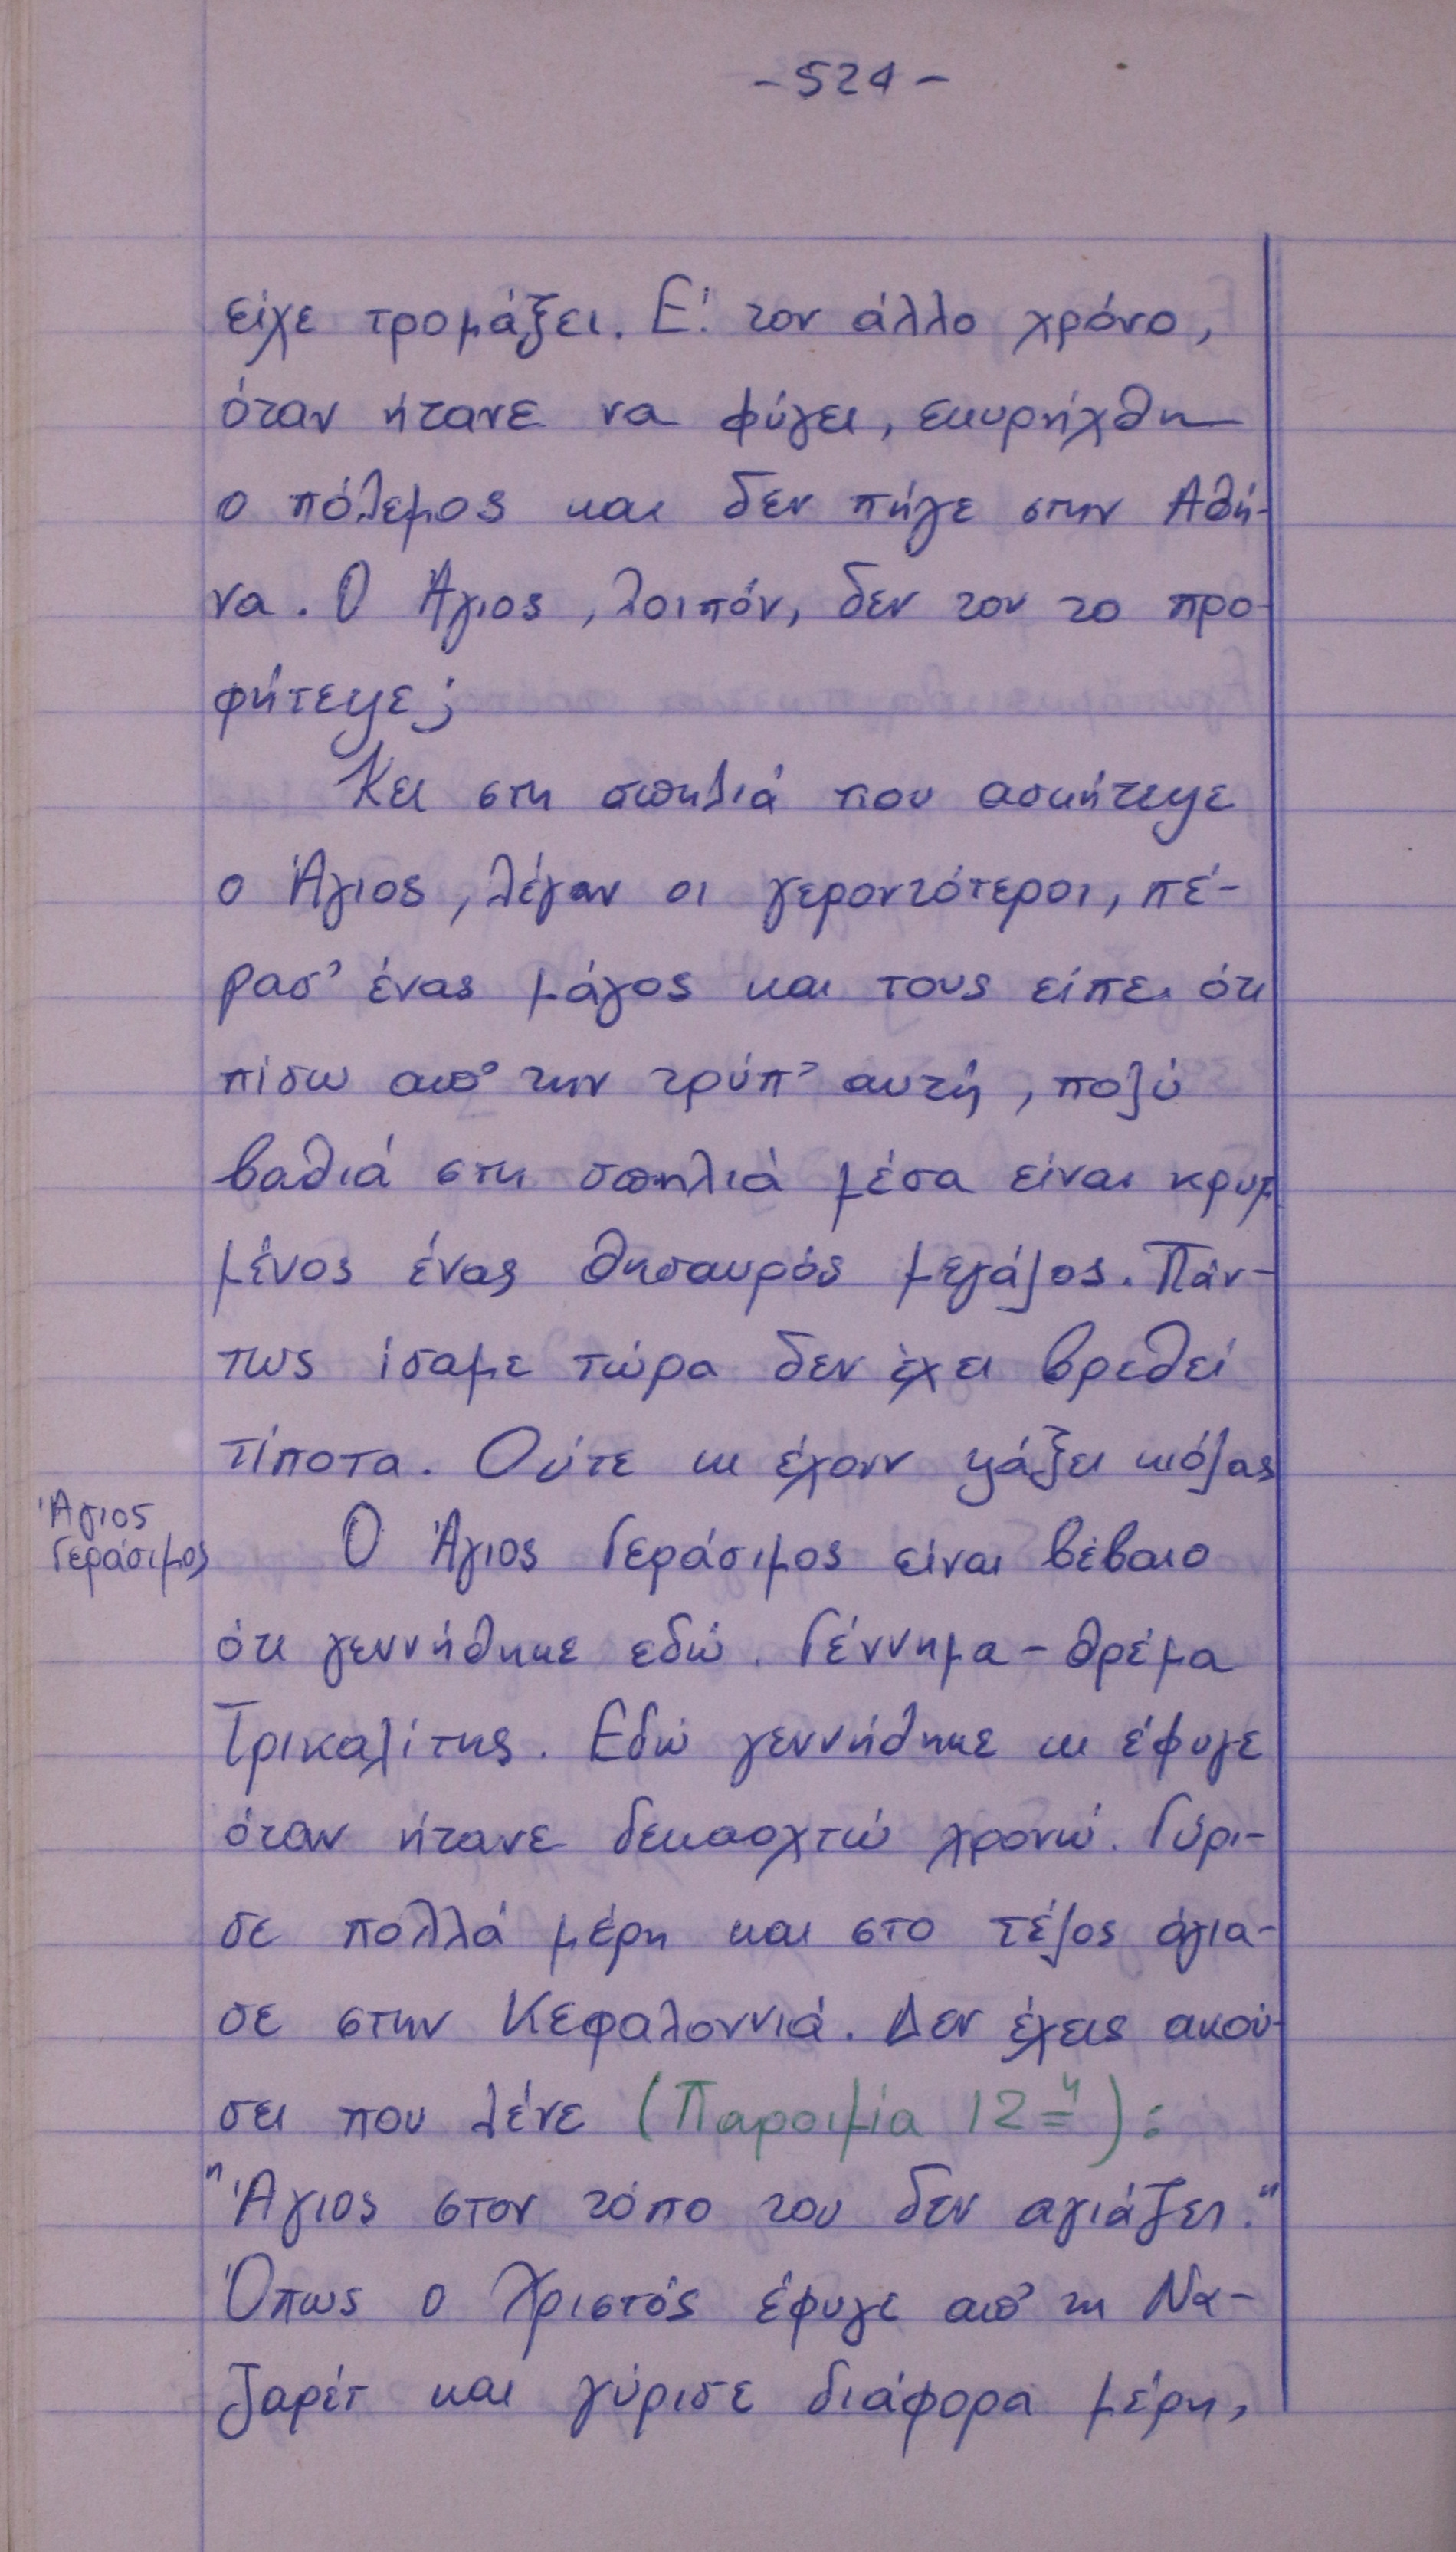 -524-
είχε τρομάξει. Ε! τον άλλο χρόνο,
όταν ήτανε να φύγει, εκυρήχθη
ο πόλεμος και δεν πήγε στην Αθή-
να. Ο Άγιος, λοιπόν, δεν του το προ-
φήτεψε;
Κει στη σπηλιά που ασκήτεψε
ο Άγιος, λέγαν οι γεροντότεροι, πέ-
ρασ' ένας μάγος και τους είπε ότι
πίσω απ' την τρύπ' αυτή, πολύ
βαθιά στη σπηλιά μέσα είναι κρυμ
μένος ένας θησαυρός μεγάλος. Πάν-
τως ίσαμε τώρα δεν έχει βρεθεί
τίποτα. Ούτε κι έχουν ψάξει κιόλας
Άγιος
Γεράσιμος
Ο Άγιος Γεράσιμος είναι βέβαιο
ότι γεννήθηκε εδώ. Γέννημα-θρέμα
Τρικαλίτης. Εδώ γεννήθηκε κι έφυγε
όταν ήτανε δεκαοχτώ χρονώ. Γύρι-
σε πολλά μέρη και στο τέλος άγια-
σε στην Κεφαλοννιά. Δεν έχεις ακού-
σει που λένε (Παροιμία 12η):
"Άγιος στον τόπο του δεν αγιάζει."
Όπως ο Χριστός έφυγε απ' τη Να-
ζαρέτ και γύρισε διάφορα μέρη,